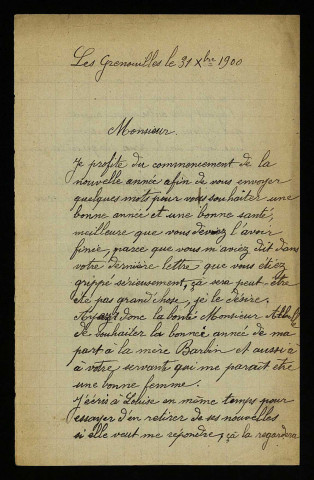 Les Grenouilles le 31 Xbre 1900
Monsieur.
Je profite du commencement de la
nouvelle année afin de vous envoyer
quelques mots pour vous souhaiter une
bonne année et une bonne santé,
meilleure que vous devez l'avoir
finée, parce que vous m'aviez dit dans
votre dernière lettre que vous étiez
grippé serieusement, sa sera peut-être
été pas grand chose, je le désire.
Ayez donc la bonté Monsieur
de souhaiter la bonne année de ma
part à la mère Barbin et aussi à
à votre servante qui me parait être
une bonne femme.
J'écris à Louise en même temps pour
essayer d'en retirer de ses nouvelles
si elle veut me repondre, ça la regardera